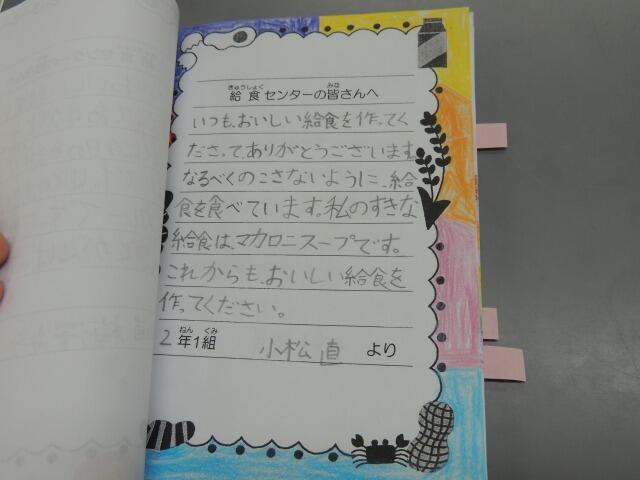 給食センターの皆さんへ
いつも、おいしい給食を作ってく
ださって、ありがとうございます。
なるべくのこさないように、給
食を食べています。私のすきな
給食は、マカロニスープです。
これからも、おいしい給食を
作ってください。
2年1組 小松 直 より